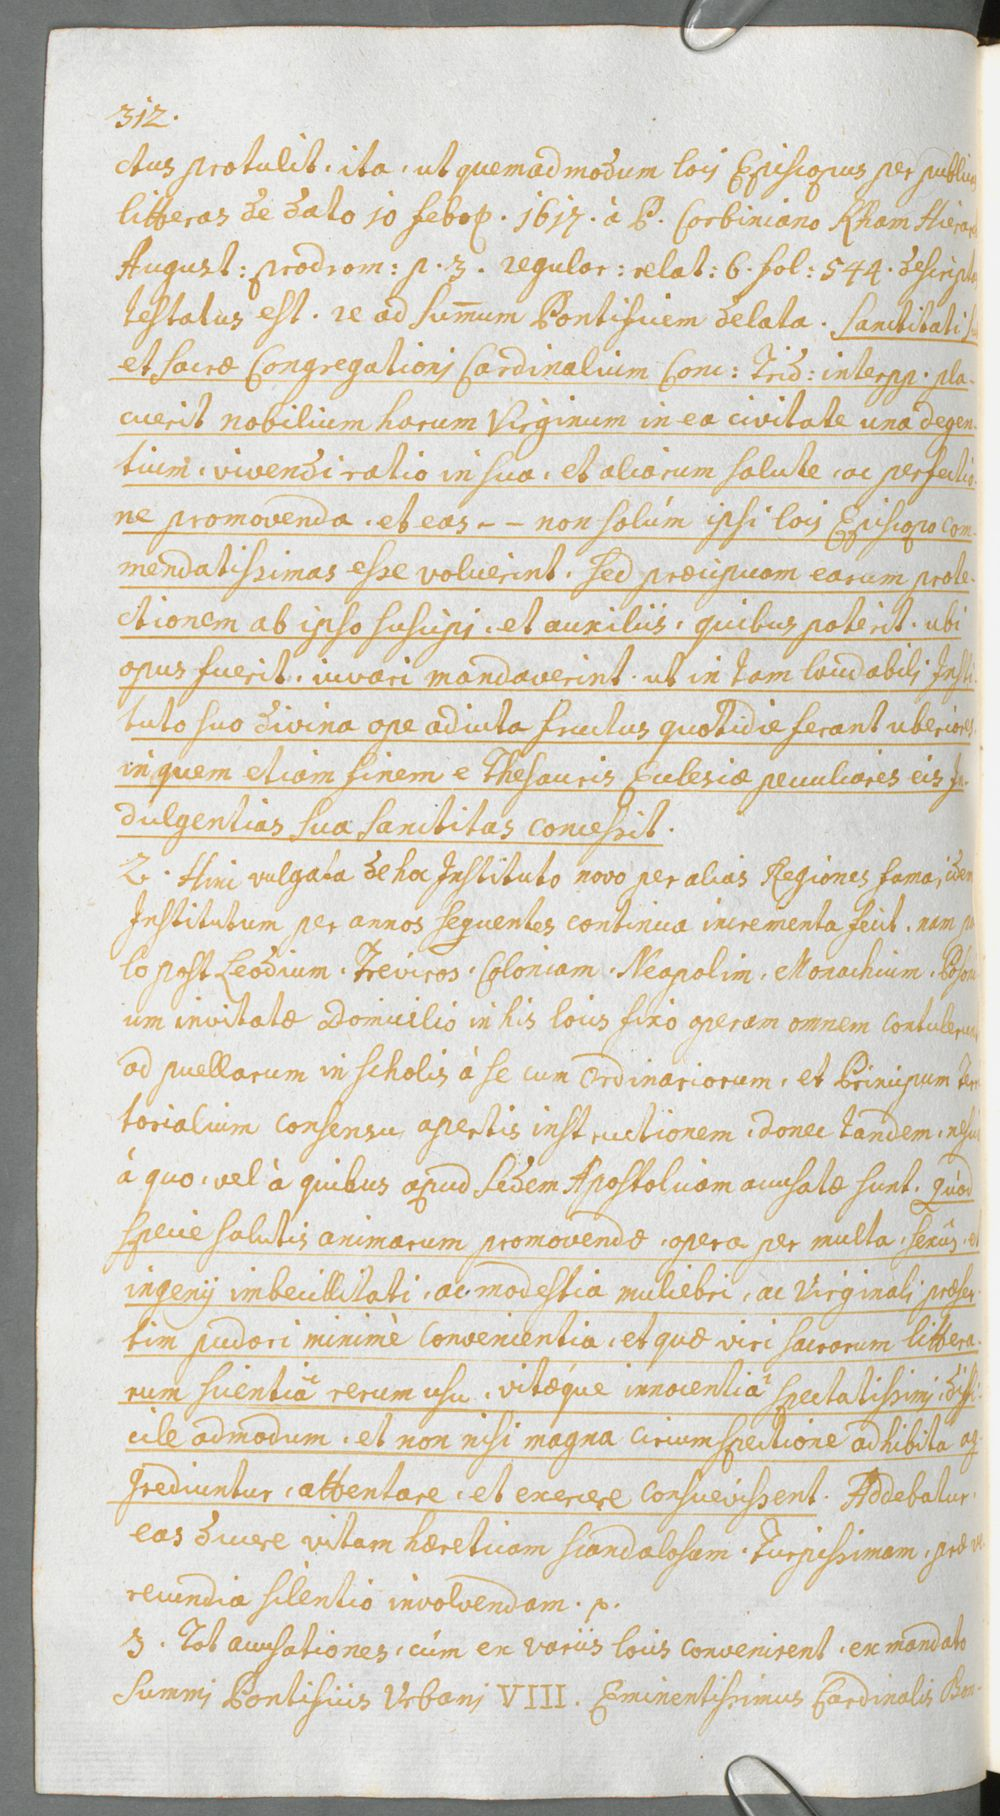 312.
ctus protulit. ita, ut quemadmodum loci Episcopus per publicas
litteras de dato 10 febr. 1617. à P. Corbiniano Kham Hierarch
August: prodrom: p. 3. regular: relat: 6. fol: 544. descriptas
testatus est. re ad Sum̅um Pontificem delata. Sanctitati suæ
et Sacræ Congregationi Cardinalium Conc: Trid: interpp. pla-
cuerit nobilium harum Virginum in ea civitate una degen-
tium, vivendi ratio in sua, et aliarum salute, ac perfectio-
ne promovenda, et eas - - non solùm ipsi loci Episcopo com-
mendatissimas esse voluerint. sed præcipuam earum prote-
ctionem ab ipso suscipi, et auxiliis, quibus poterit, ubi
opus fuerit, iuvari mandaverint. ut in tam laudabili Insti-
tuto suo divina ope adiuta fructus quotidie ferant uberiores,
in quem etiam finem e Thesauris Ecclesiæ peculiares eis In-
dulgentias sua Sanctitas concessit.
2. Hinc vulgata de hoc Instituto novo per alias Regiones fama, idem
Institutum per annos sequentes continua incrementa fecit. nam pau-
lo post Leodium, Treviros, Coloniam, Neapolim, Monachium, Posoni-
um invitatæ Domicilio in his locis fixo operam omnem contulerunt
ad puellarum in scholis à se cum Ordinariorum, et Principum Terri-
torialium consensu apertis instructionem, donec tandem, nescio
à quo, vel à quibus apud Sedem Apostolicam accusatæ sunt. quòd
specie salutis animarum promovendæ, opera per multa, sexûs, et
ingenij imbecillitati, ac modestiæ muliebri, ac Virginali præser-
tim pudori minimè convenientia, et quæ viri sacrarum littera-
rum scientiâ rerum usu, vitæque innocentiâ spectatissimi, diffi-
cile admodum, et non nisi magna circumspectione adhibita ag-
grediuntur, attentare, et exercere consuevissent. Addebatur,
eas ducere vitam hæreticam scandalosam, Turpissimam, præ ve-
recundia silentio involvendam. p.
3. Tot accusationes, cùm ex variis locis convenirent, ex mandato
Summi Pontificis Urbani VIII. Eminentissimus Cardinalis Bon-